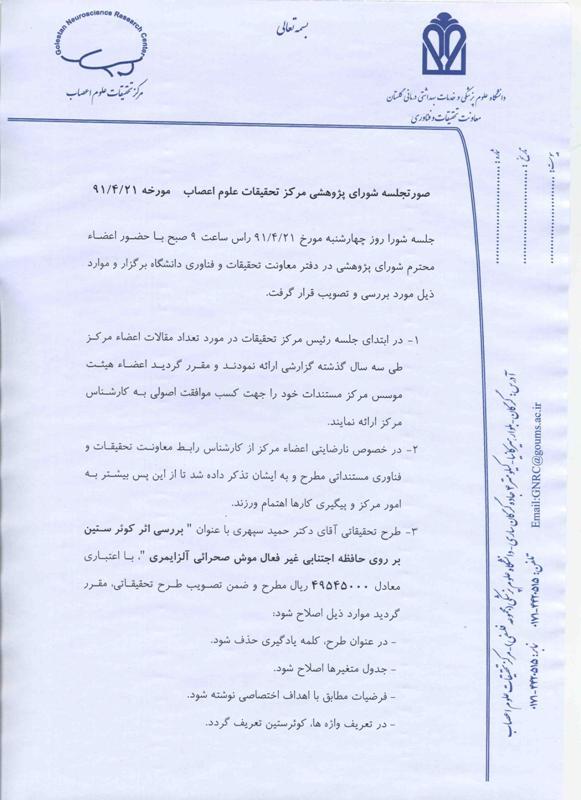 بسمه تعالی
Golestan Neuroscience Research Center
مرکز تحقیقات علوم اعصاب
دانشگاه علوم پزشکی و خدمات بهداشتی درمانی گلستان
معاونت تحقیقات و فناوری
شماره:
تاریخ:
پیوست:
صورتجلسه شورای پژوهشی مرکز تحقیقات علوم اعصاب مورخه ۹۱/۴/۲۱
جلسه شورا روز چهارشنبه مورخ ۹۱/۴/۲۱ راس ساعت ۹ صبح با حضور اعضاء
محترم شورای پژوهشی در دفتر معاونت تحقیقات و فناوری دانشگاه برگزار و موارد
ذیل مورد بررسی و تصویب قرار گرفت.
۱- در ابتدای جلسه رئیس مرکز تحقیقات در مورد تعداد مقالات اعضاء مرکز
طی سه سال گذشته گزارشی ارائه نمودند و مقرر گردید اعضاء هیئت
موسس مرکز مستندات خود را جهت کسب موافقت اصولی به کارشناس
مرکز ارائه نمایند.
۲- در خصوص نارضایتی اعضاء مرکز از کارشناس رابط معاونت تحقیقات و
فناوری مستنداتی مطرح و به ایشان تذکر داده شد تا از این پس بیشتر به
امور مرکز و پیگیری کارها اهتمام ورزند.
۳- طرح تحقیقاتی آقای دکتر حمید سپهری با عنوان " بررسی اثر کوئر ستین
بر روی حافظه اجتنابی غیر فعال موش صحرائی آلزایمری "، با اعتباری
معادل ۴۹۵۴۵۰۰۰ ریال مطرح و ضمن تصویب طرح تحقیقاتی، مقرر
گردید موارد ذیل اصلاح شود:
- در عنوان طرح، کلمه یادگیری حذف شود.
- جدول متغیرها اصلاح شود.
- فرضیات مطابق با اهداف اختصاصی نوشته شود.
- در تعریف واژه ها، کوئرستین تعریف گردد.
آدرس: گرگان- جاده گرگان ساری- دانشگاه علوم پزشکی - مرکز تحقیقات علوم اعصاب
تلفن: ۴۴۲۰۵۱۵-۰۱۷۱ نمابر: ۴۴۲۰۵۱۵-۰۱۷۱
Email:GNRC@goums.ac.ir